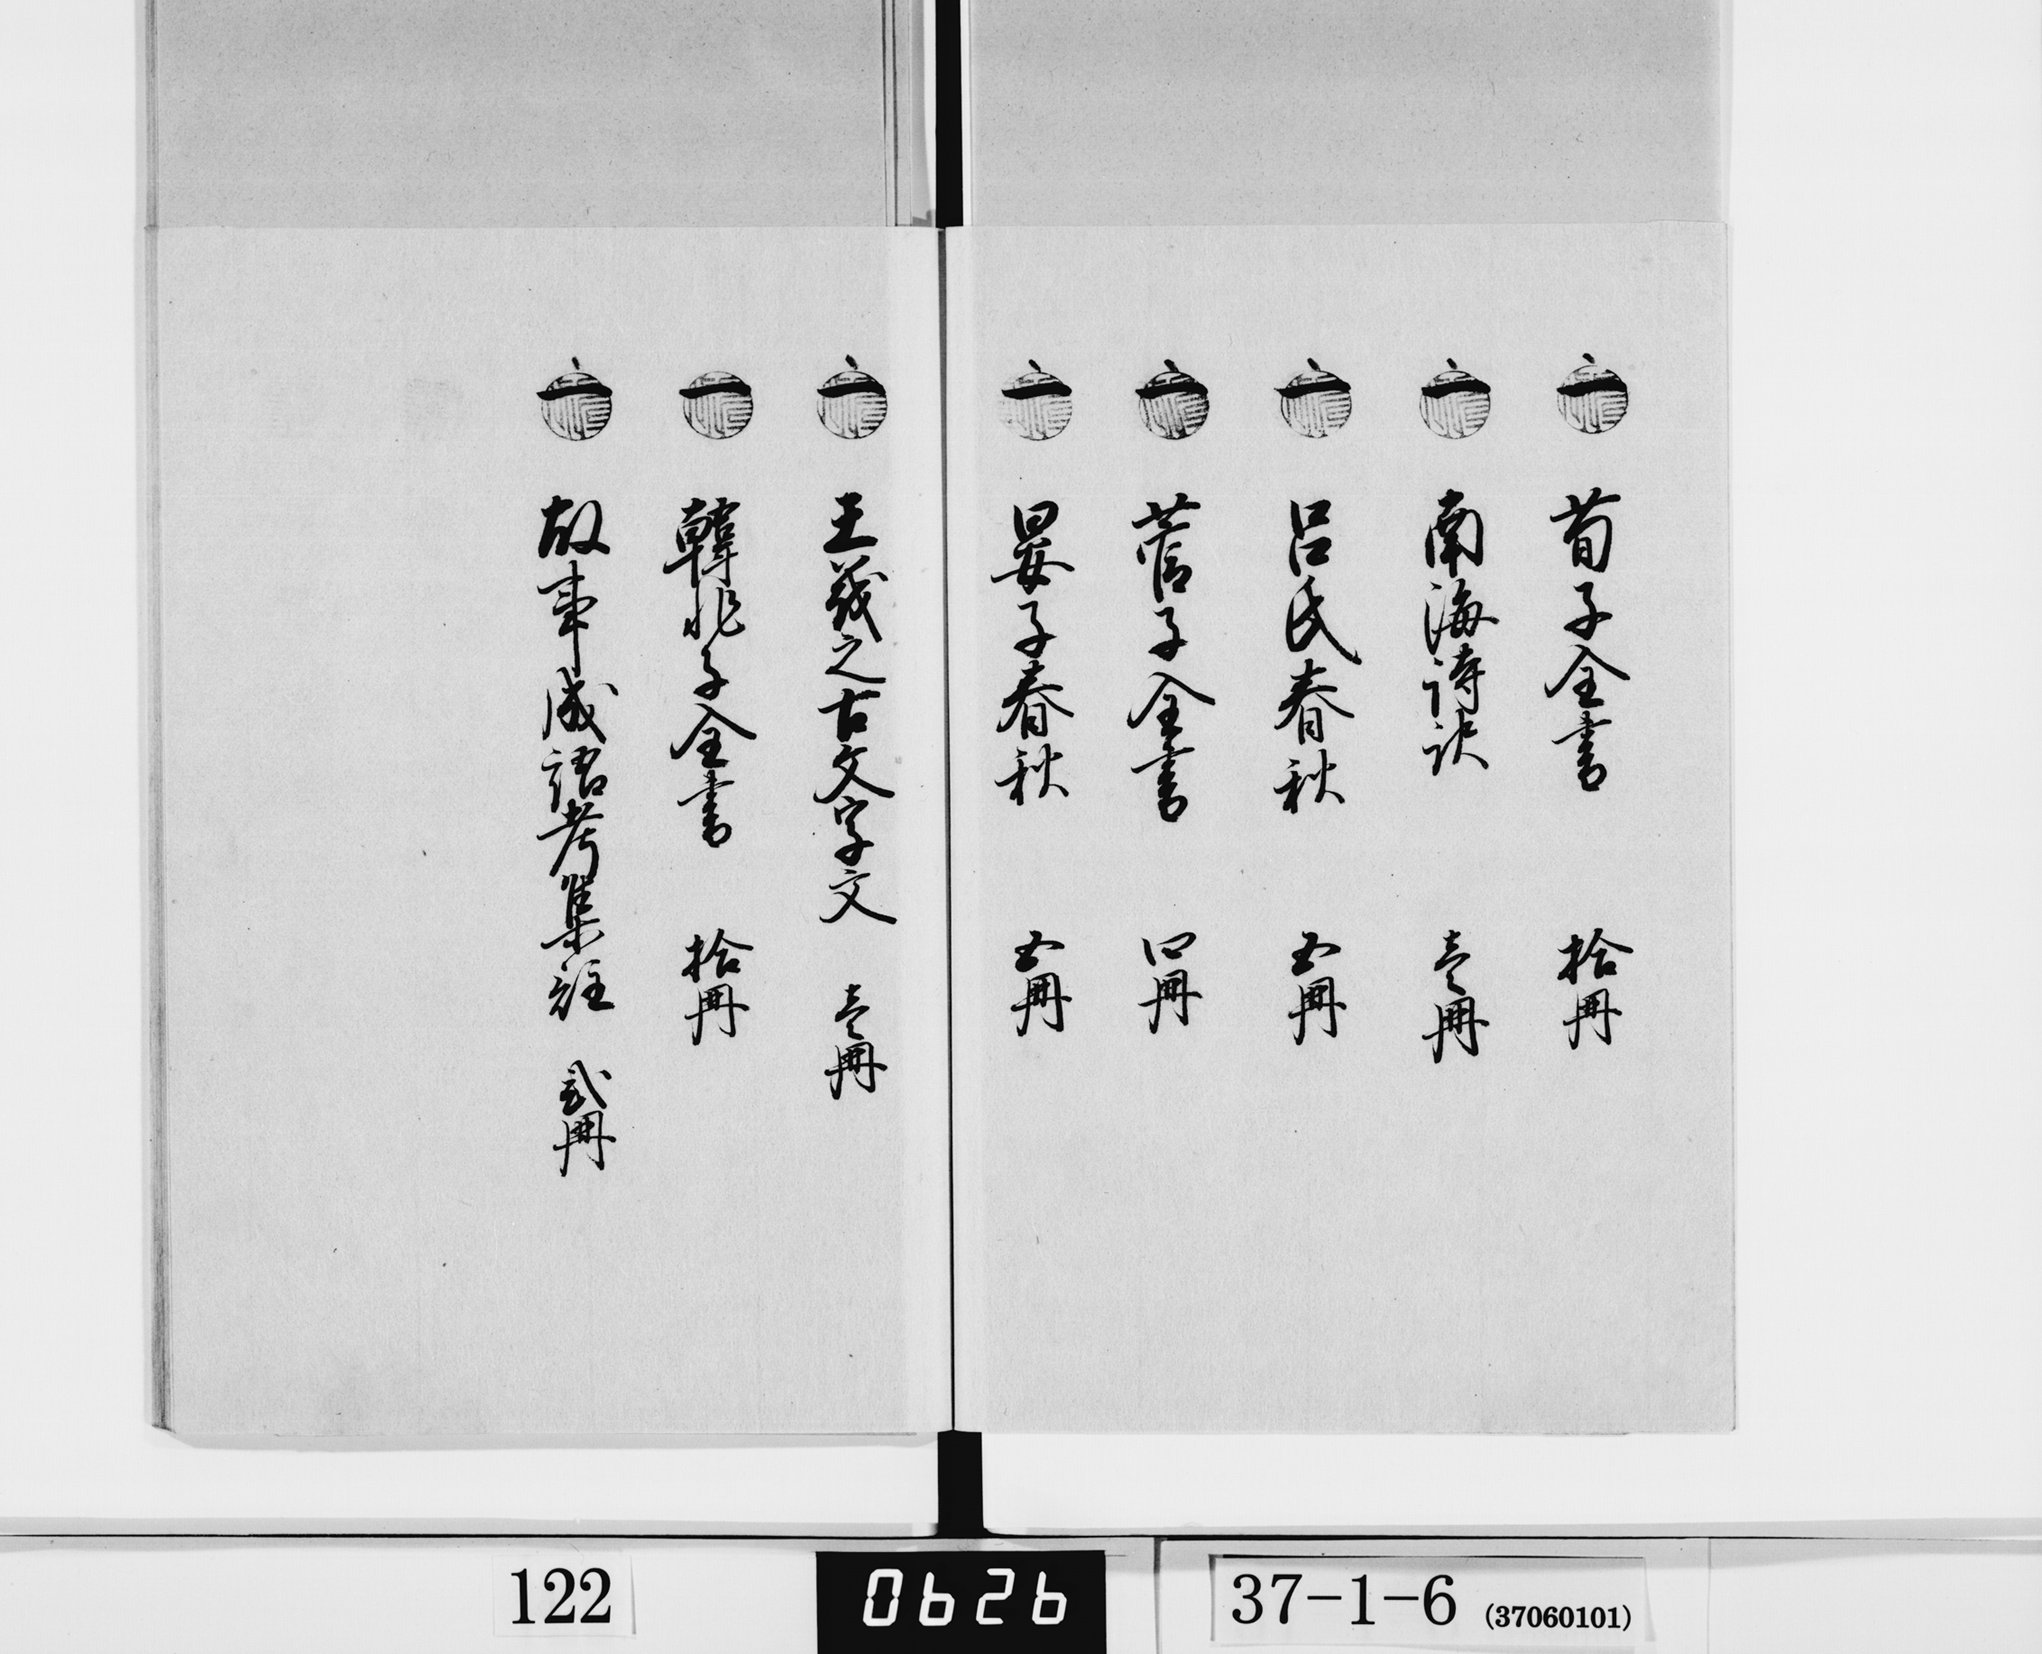 一 荀子全書 拾冊
一 南海詩訣 壱冊
一 呂氏春秋 五冊
一 管子全書 四冊
一 晏子春秋 五冊
一 王羲之古文字文 壱冊
一 韓非子全書 拾冊
一 故事成語考集註 弐冊
122
0626
37-1-6 (37060101)